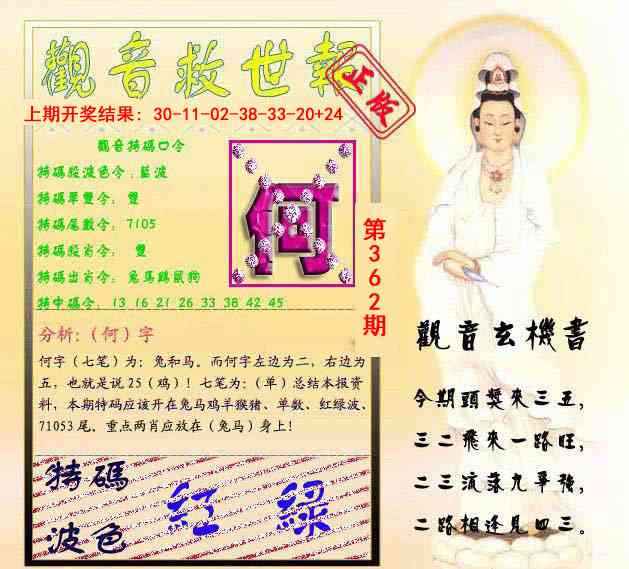 觀音救世報
正版
上期开奖结果：30-11-02-38-33-20+24
觀音特碼口令
特碼段波色令：藍波
特碼單雙令： 雙
特碼尾數令： 7105
特碼段肖令： 雙
特碼出肖令： 兔馬鷄鼠狗
特中碼令： 13 16 21 26 33 38 42 45
何
第362期
分析:（何）字
何字（七笔）为：兔和马。而何字左边为二，右边为
五，也就是说 25（鸡）！七笔为：（单）总结本报资
料，本期特码应该开在兔马鸡羊猴猪、单数、红绿波、
71053 尾。重点两肖应放在（兔马）身上！
特碼
波色
紅 綠
觀音玄機書
今期頭獎來三五，
三二飛來一路旺，
二三流落九爭強，
二路相逢見四三。